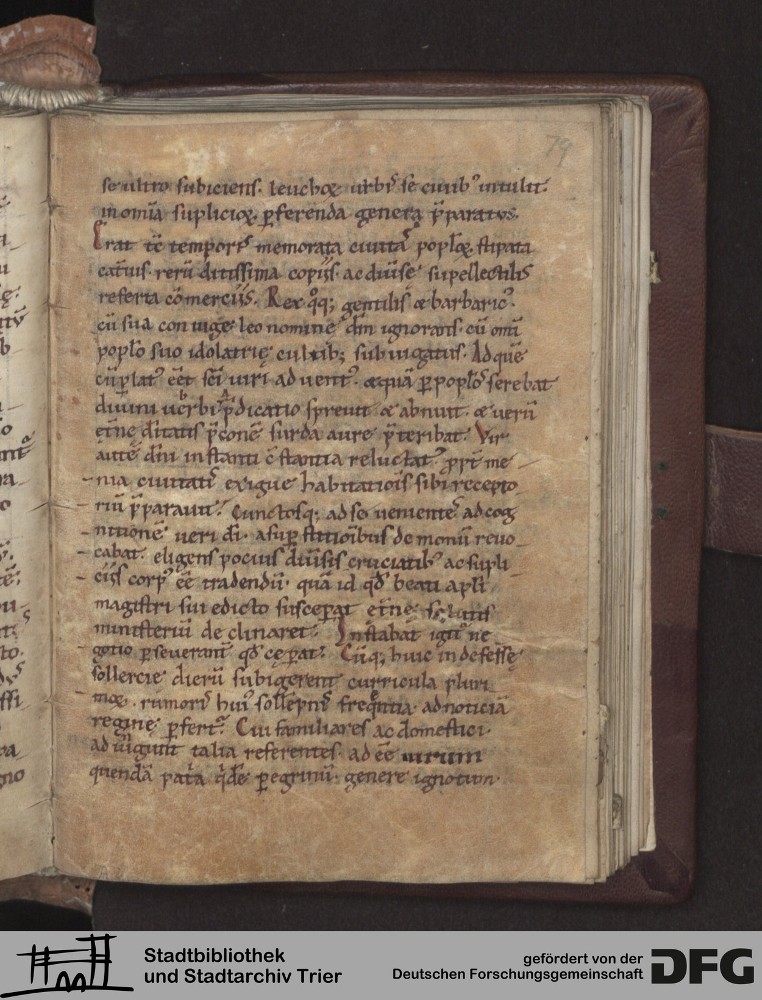 79
se ultro subiciens. leuchoꝝ urbi se ciuibꝰ intulit.
in omia suplicioꝝ ꝑferenda genera p̄paratus.
Erat tc̄ temporis memorata ciuitas poploꝝ stipata
cat̄uis. rerū ditissima copiis. ac diuse supellectilis
referta cōmerciis. Rex qͦq; gentilis & barbaricꝰ.
cū sua coniuge leo nomine dm̄ ignorans. cū omi
poplo suo idolatrię cultib; subiugatus. Ad quē
cū ꝑlatꝰ eēt sc̄i uiri aduentꝰ. & quia ꝑ poplos serebat
diuini uerbi p̄dicatio spreuit & abnuit. & uerū
ęt̄nę ditatis p̄conē surda aure p̄teribat. Vir
autē dn̄i instanti cstantia reluctatꝰ ꝓpt me
nia ciuitatis exigue habitatiois sibi recepto
riū p̄parauit. Cunctosq; ad se uenientes ad cog
nitionē ueri di. a suꝑstitioibus demoniū reuo
cabat. eligens pocius diuisis cruciatibꝰ ac supli
ciis corpꝰ eē tradendū. quā id qd̄ beati apli
magistri sui edicto susceperat et̄nę salutis
ministeriū declinaret. Instabat igit ne
gotio ꝑseueranti qd̄ cęperat. Cūq; huic indefessę
sollercie dierū subigerent curricula pluri
moꝝ. rumoris huiꝰ sollepnis frequntia ad noticiā
reginę ꝑfertꝰ. Cui familiares ac domestici.
aduigunt talia referentes. ad eē uirum
quendā pat̄a qͥdē peregrinū. genere ignotum.
Stadtbibliothek
und Stadtarchiv Trier
gefördert von der
Deutschen Forschungsgemeinschaft
DFG